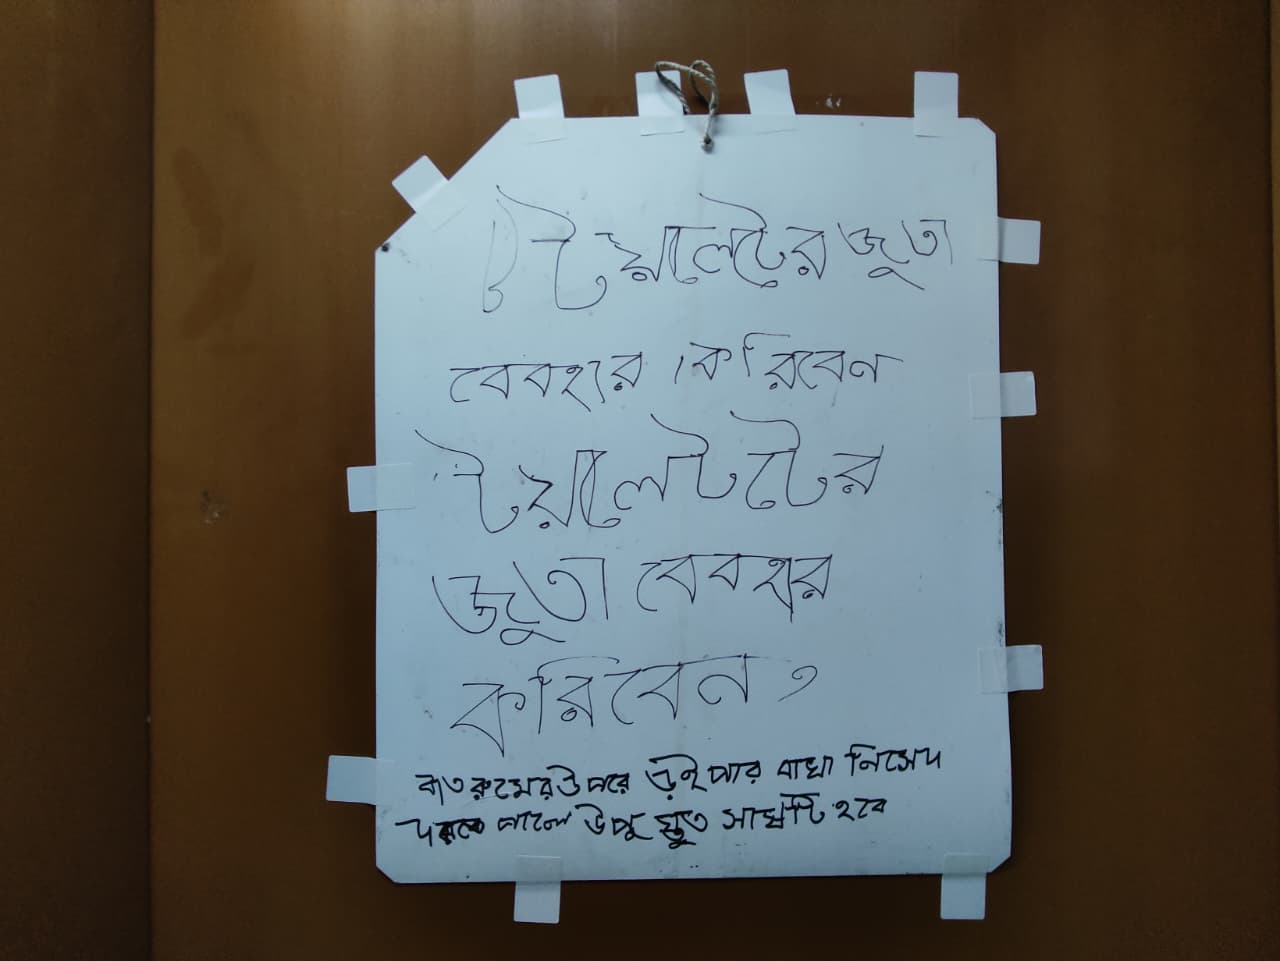 টয়ালেটের জুতা
বেবহার করিবেন
টয়ালেটটের
জুতা বেবহার
করিবেন,
বাতরুমের উপরে ড্রইপার রাখা নিসেদ
দরতে পালে উপু যুত সাস্থি হবে